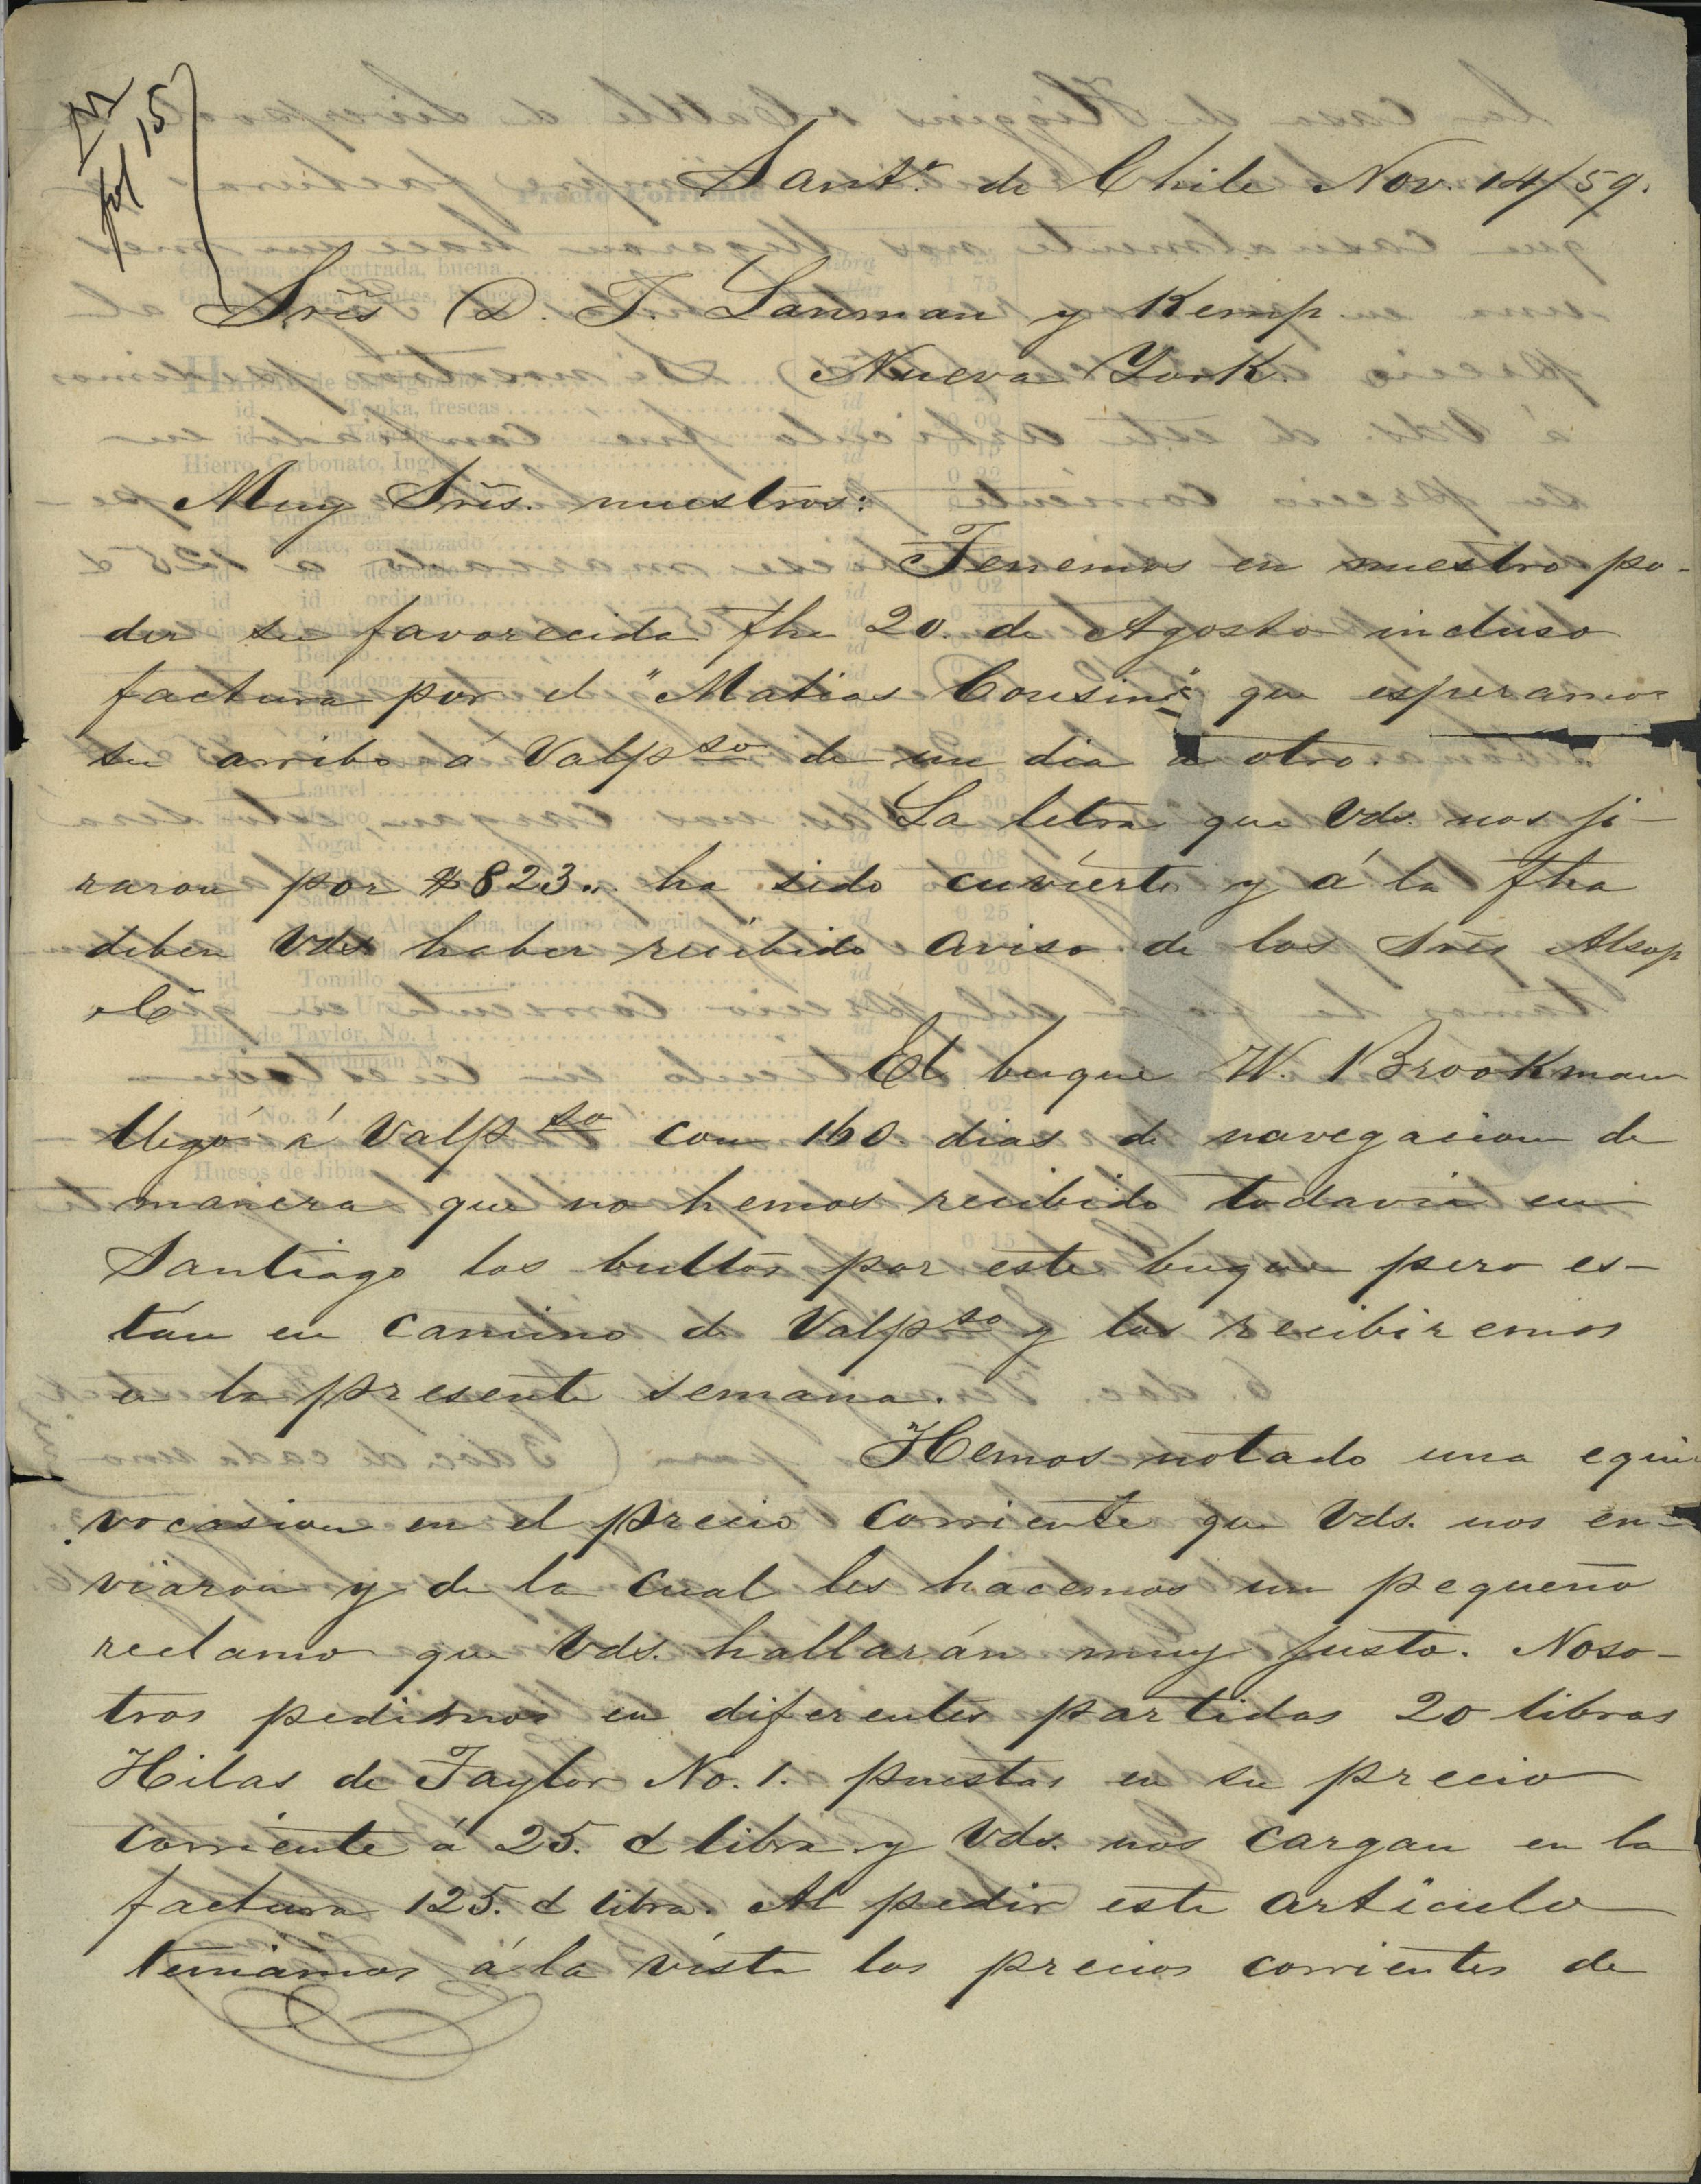 fol 15
Sant.º de Chile Nov. 14/59.
Srēs D. T. Lanman y Kemp.
Nueva York.
Muy Srēs. nuestros:
Tenemos en nuestro po-
der su favorecida fha 20. de Agosto incluso
factura por el "Matias Cousiño" que esperamos
su arribo á Valpso de un dia á otro.
La letra que Vds. nos ji-
raron por $823 „ ha sido cuvierta y á la fha
deben Vds haber recibido aviso de los Srēs Alsop
y Cª
El buque W. Brookman
llegó á Valpso con 160 dias de navegacion de
manera que no hemos recibido todavia en
Santiago los bultos por este buque pero es-
tán en camino de Valpso y los recibiremos
en la presente semana.
Hemos notado una equi
vocasion en el precio corriente que Vds. nos en-
viaron y de la cual les hacemos un pequeño
reclamo que Vds. hallarán muy justo. Noso-
tros pedimos en diferentes partidas 20 libras
Hilas de Taylor No. 1. puestas en su precio
corriente á 25. ¢ libra y Vds. nos cargan en la
factura 125. ¢ libra. Al pedir este articulo
teniamos á la vista los precios corrientes de